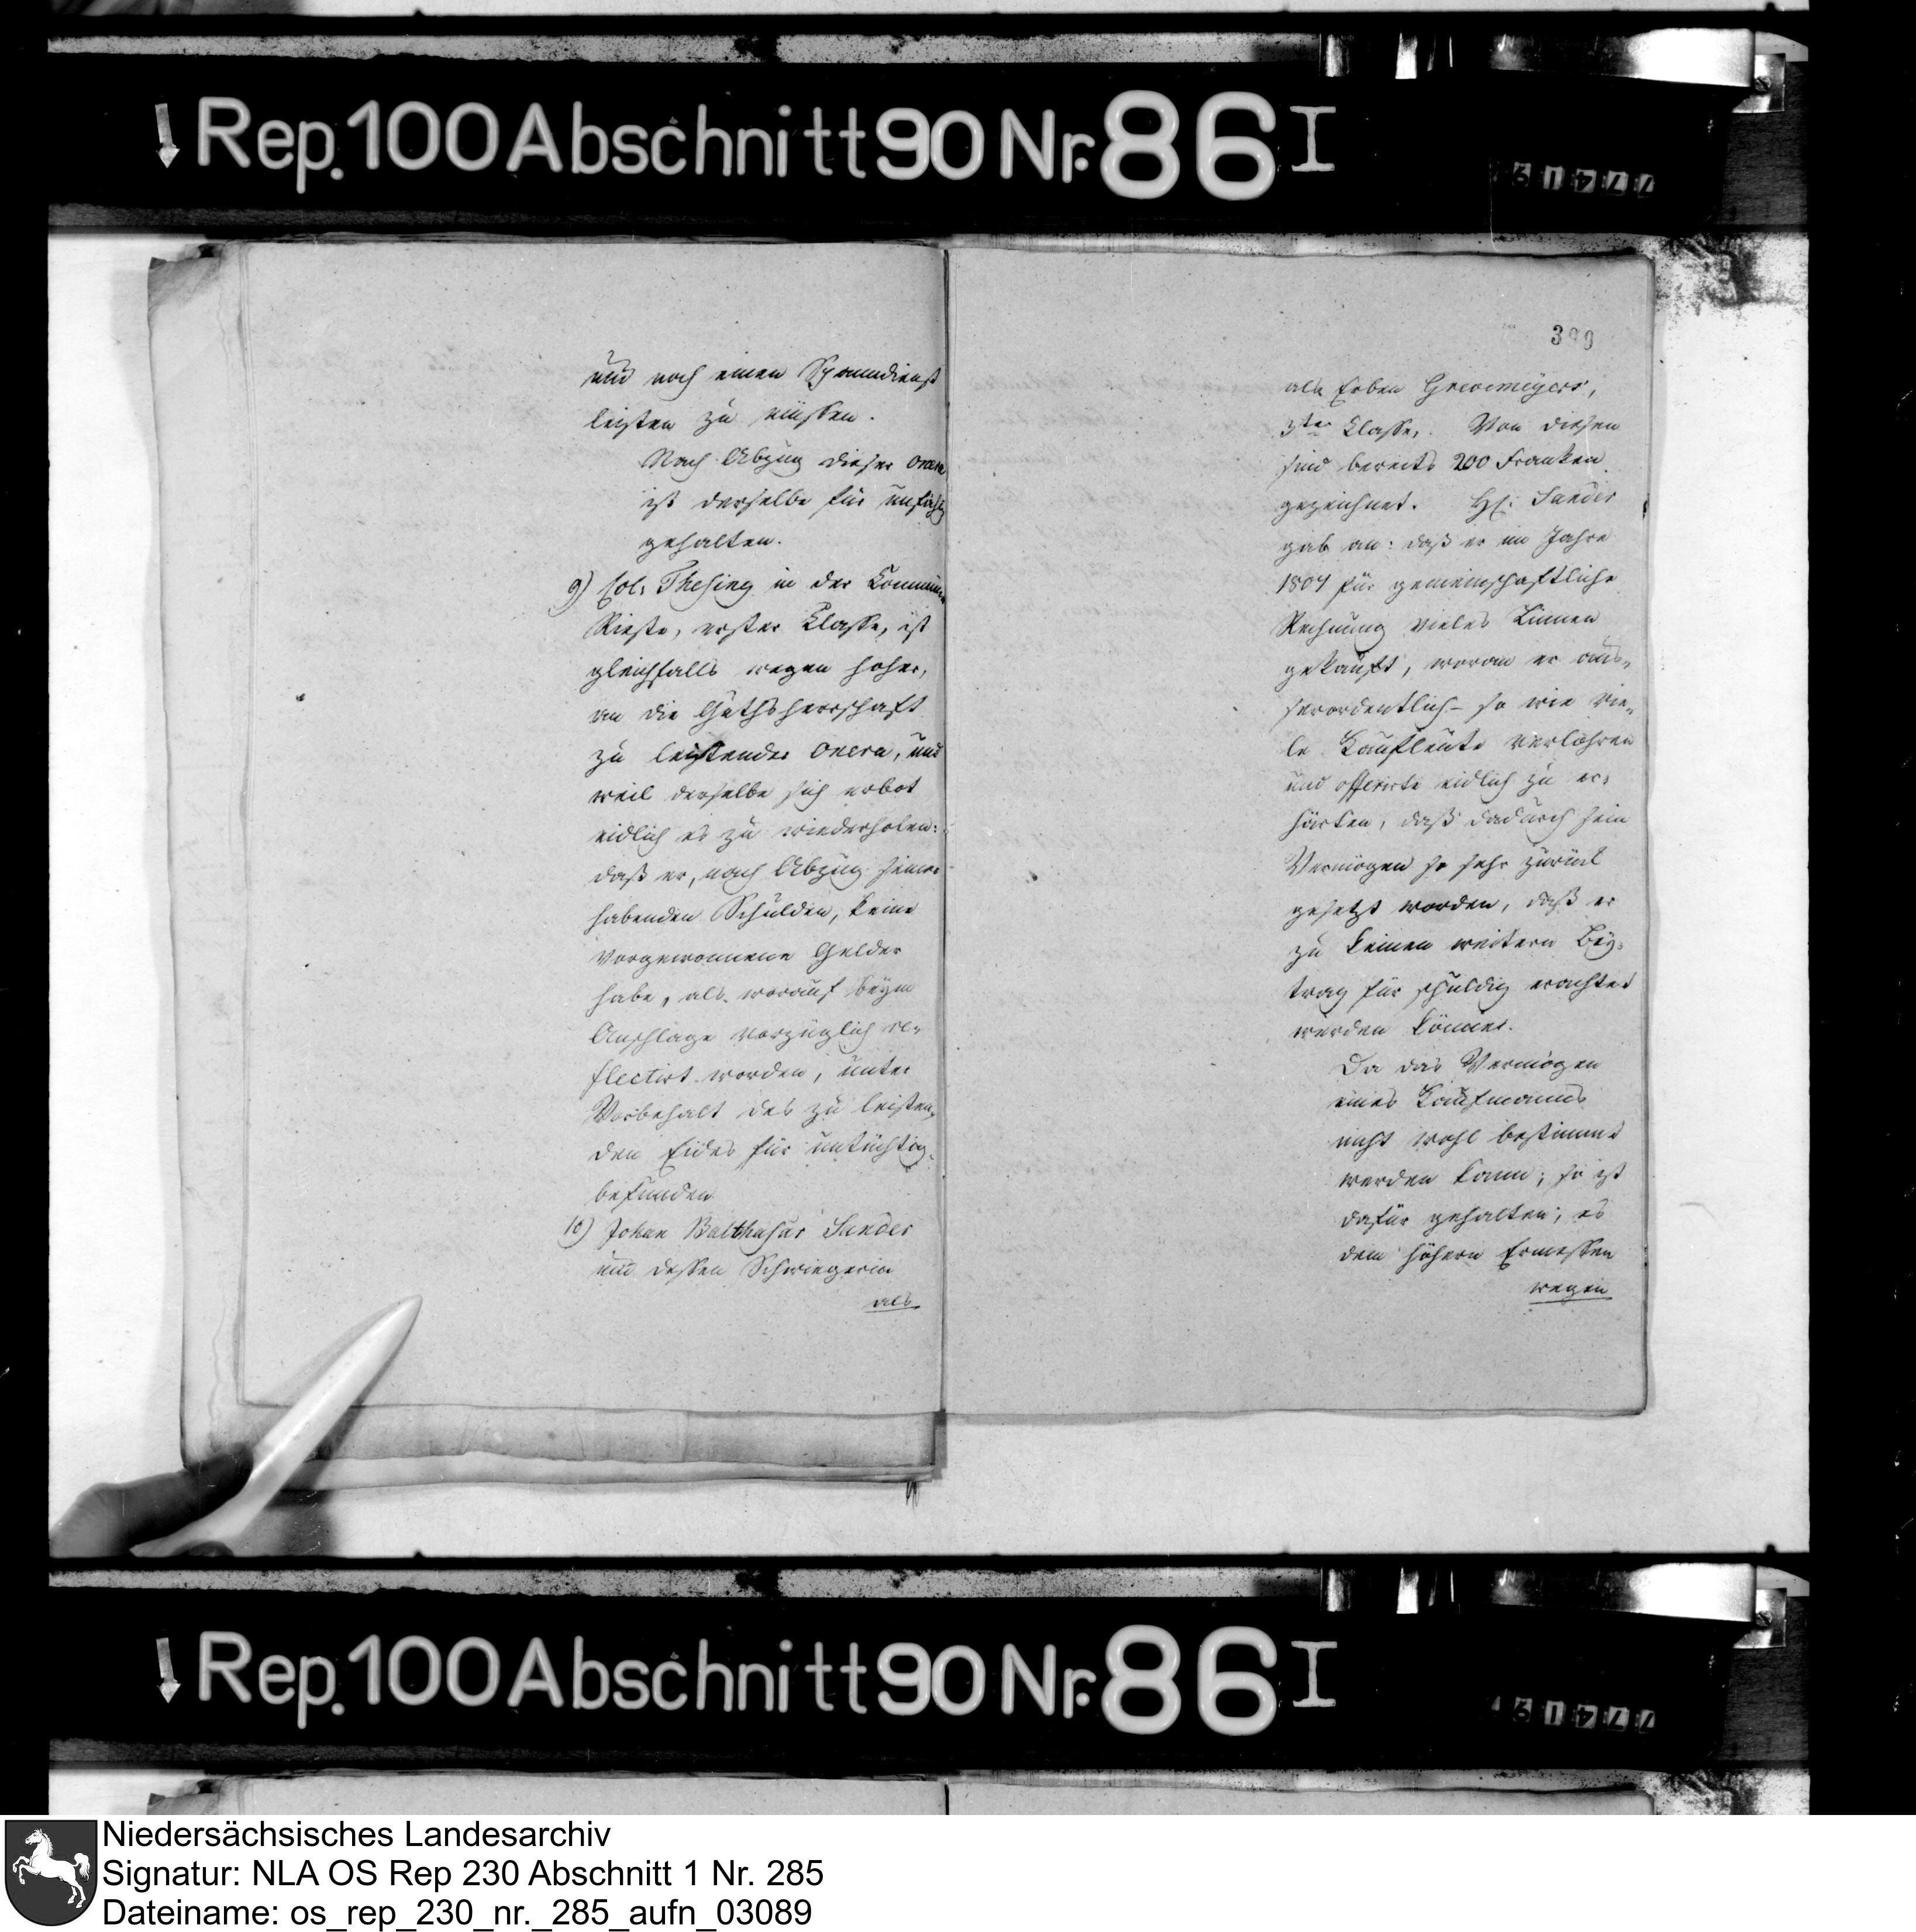 Rep. 100 Abschnitt 90 Nr. 86 I
77419
und noch einen Spanndienst
leisten zu müssen.
Nach Abzug dieser onera
ist derselbe für unfähig
gehalten.
9) Col. Thesing in der Commune
Rieste, erster Classe, ist
gleichfalls wegen hoher,
an die Guthsherrschaft
zu leistender onera, und
weil derselbe sich erbot
eidlich es zu wiederholen:
daß er, nach Abzug seiner
habenden Schulden, keine
vorgewonnene Gelder
habe, als worauf beym
Anschlage vorzüglich re-
flectirt worden, unter
Vorbehalt des zu leisten-
den Eides für untüchtig
befunden
10) Johan Balthasar Sander
und dessen Schwiegerin
als
399
als Erben Grevemeyers,
3ter Classe. Von diesen
sind bereits 200 Franken
gezeichnet. H. Sander
gab an: daß er im Jahre
1804 für gemeinschaftliche
Rechnung vieles Linnen
gekauft, woran er aus-
serordentlich - so wie vie-
le Kaufleute verlohren
und offerirte eidlich zu er-
härten, daß dadurch sein
Vermögen so sehr zurück
gesetzt worden, daß er
zu keinen weitern Bey-
trag für schuldig erachtet
werden könne.
Da das Vermögen
eines Kaufmanns
nicht wohl bestimmt
werden kann; so ist
dafür gehalten, es
dem höhern Ermessen
wegen
Rep. 100 Abschnitt 90 Nr. 86 I
77419
Niedersächsisches Landesarchiv
Signatur: NLA OS Rep 230 Abschnitt 1 Nr. 285
Dateiname: os_rep_230_nr._285_aufn_03089